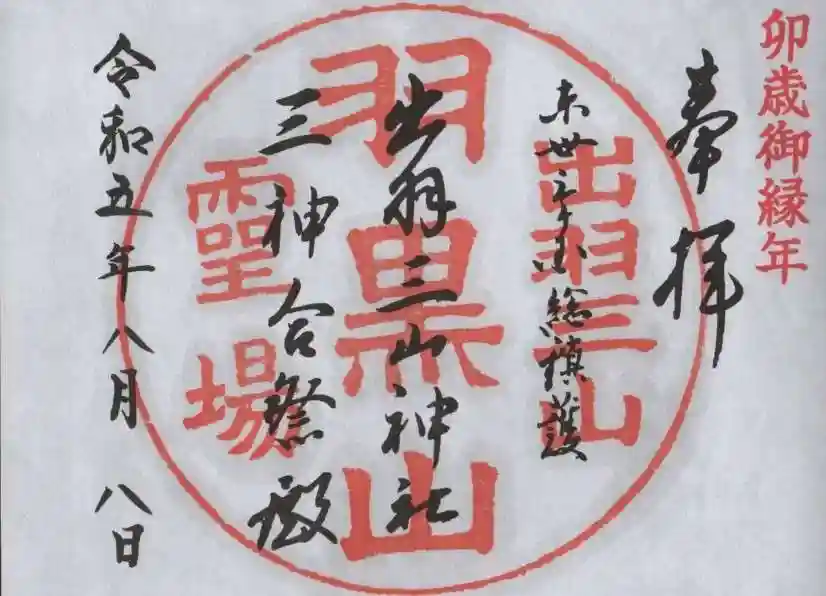 卯歳御縁年
奉拝
東卅三ヶ国総鎮護
出羽三山
出羽三山神社
羽黒山
三神合祭殿
靈場
令和五年八月 八日